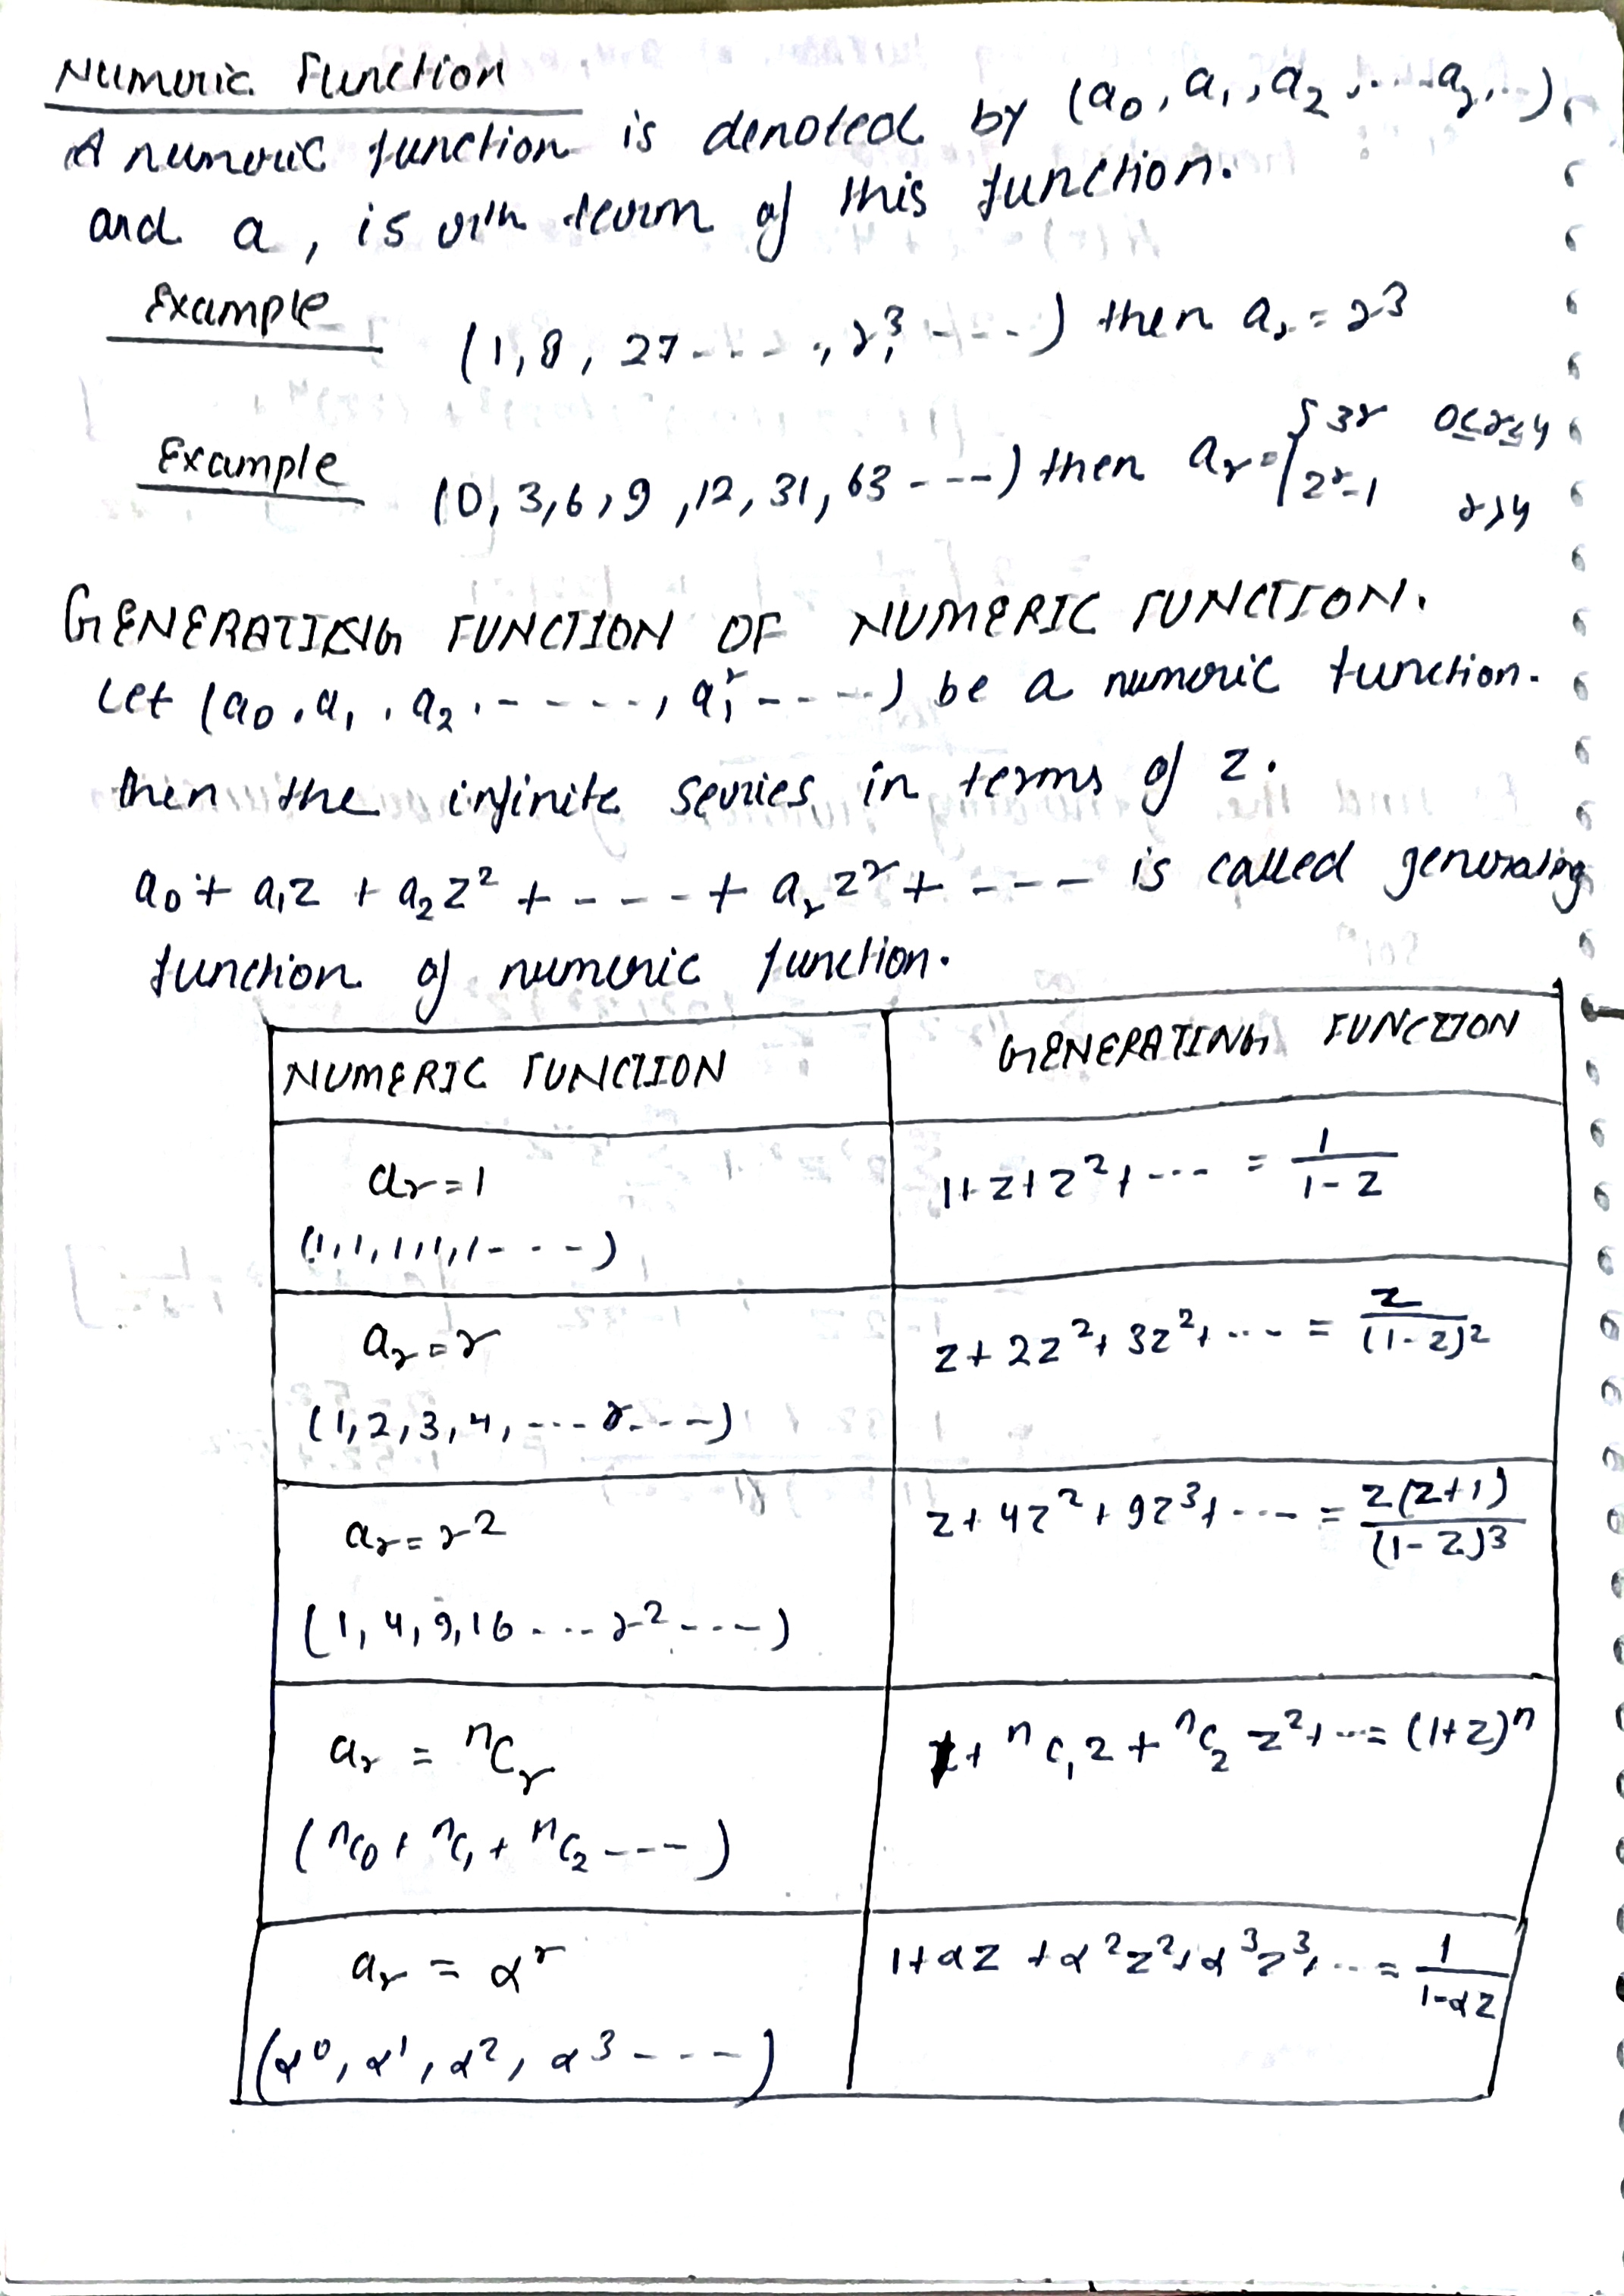 Numeric Function
A numeric function is denoted by (a₀, a₁, a₂, ... aᵣ, ..),
and aᵣ is rth term of this function.
Example (1, 8, 27 - - - -, r³, - - - -) then aᵣ = r³
Example (0, 3, 6, 9, 12, 31, 63 - - - -) then aᵣ = { 3r 0≤r≤4
2ʳ-1 r>4
GENERATING FUNCTION OF NUMERIC FUNCTION.
Let (a₀, a₁, a₂, - - - - -, aᵣ, - - - -) be a numeric function.
then the infinite series in terms of z.
a₀ + a₁z + a₂z² + - - - - + aᵣzʳ + - - - is called generating
function of numeric function.
NUMERIC FUNCTION GENERATING FUNCTION
aᵣ = 1 1+z+z²+ --- = 1/(1-z)
(1,1,1,1,1,1- - - -)
aᵣ = r z+2z²+3z²+ --- = z/(1-z)²
(1,2,3,4, ---- r - - -)
aᵣ = r² z+4z²+9z³+ --- = z(z+1)/(1-z)³
(1,4,9,16 - - - r² - - - -)
aᵣ = ⁿCᵣ 1+ ⁿC₁z + ⁿC₂ z²+ --- = (1+z)ⁿ
(ⁿC₀ + ⁿC₁ + ⁿC₂ - - - -)
aᵣ = αʳ 1+αz +α²z²+α³z³+ --- = 1/(1-αz)
(α⁰, α¹, α², α³ - - - -)